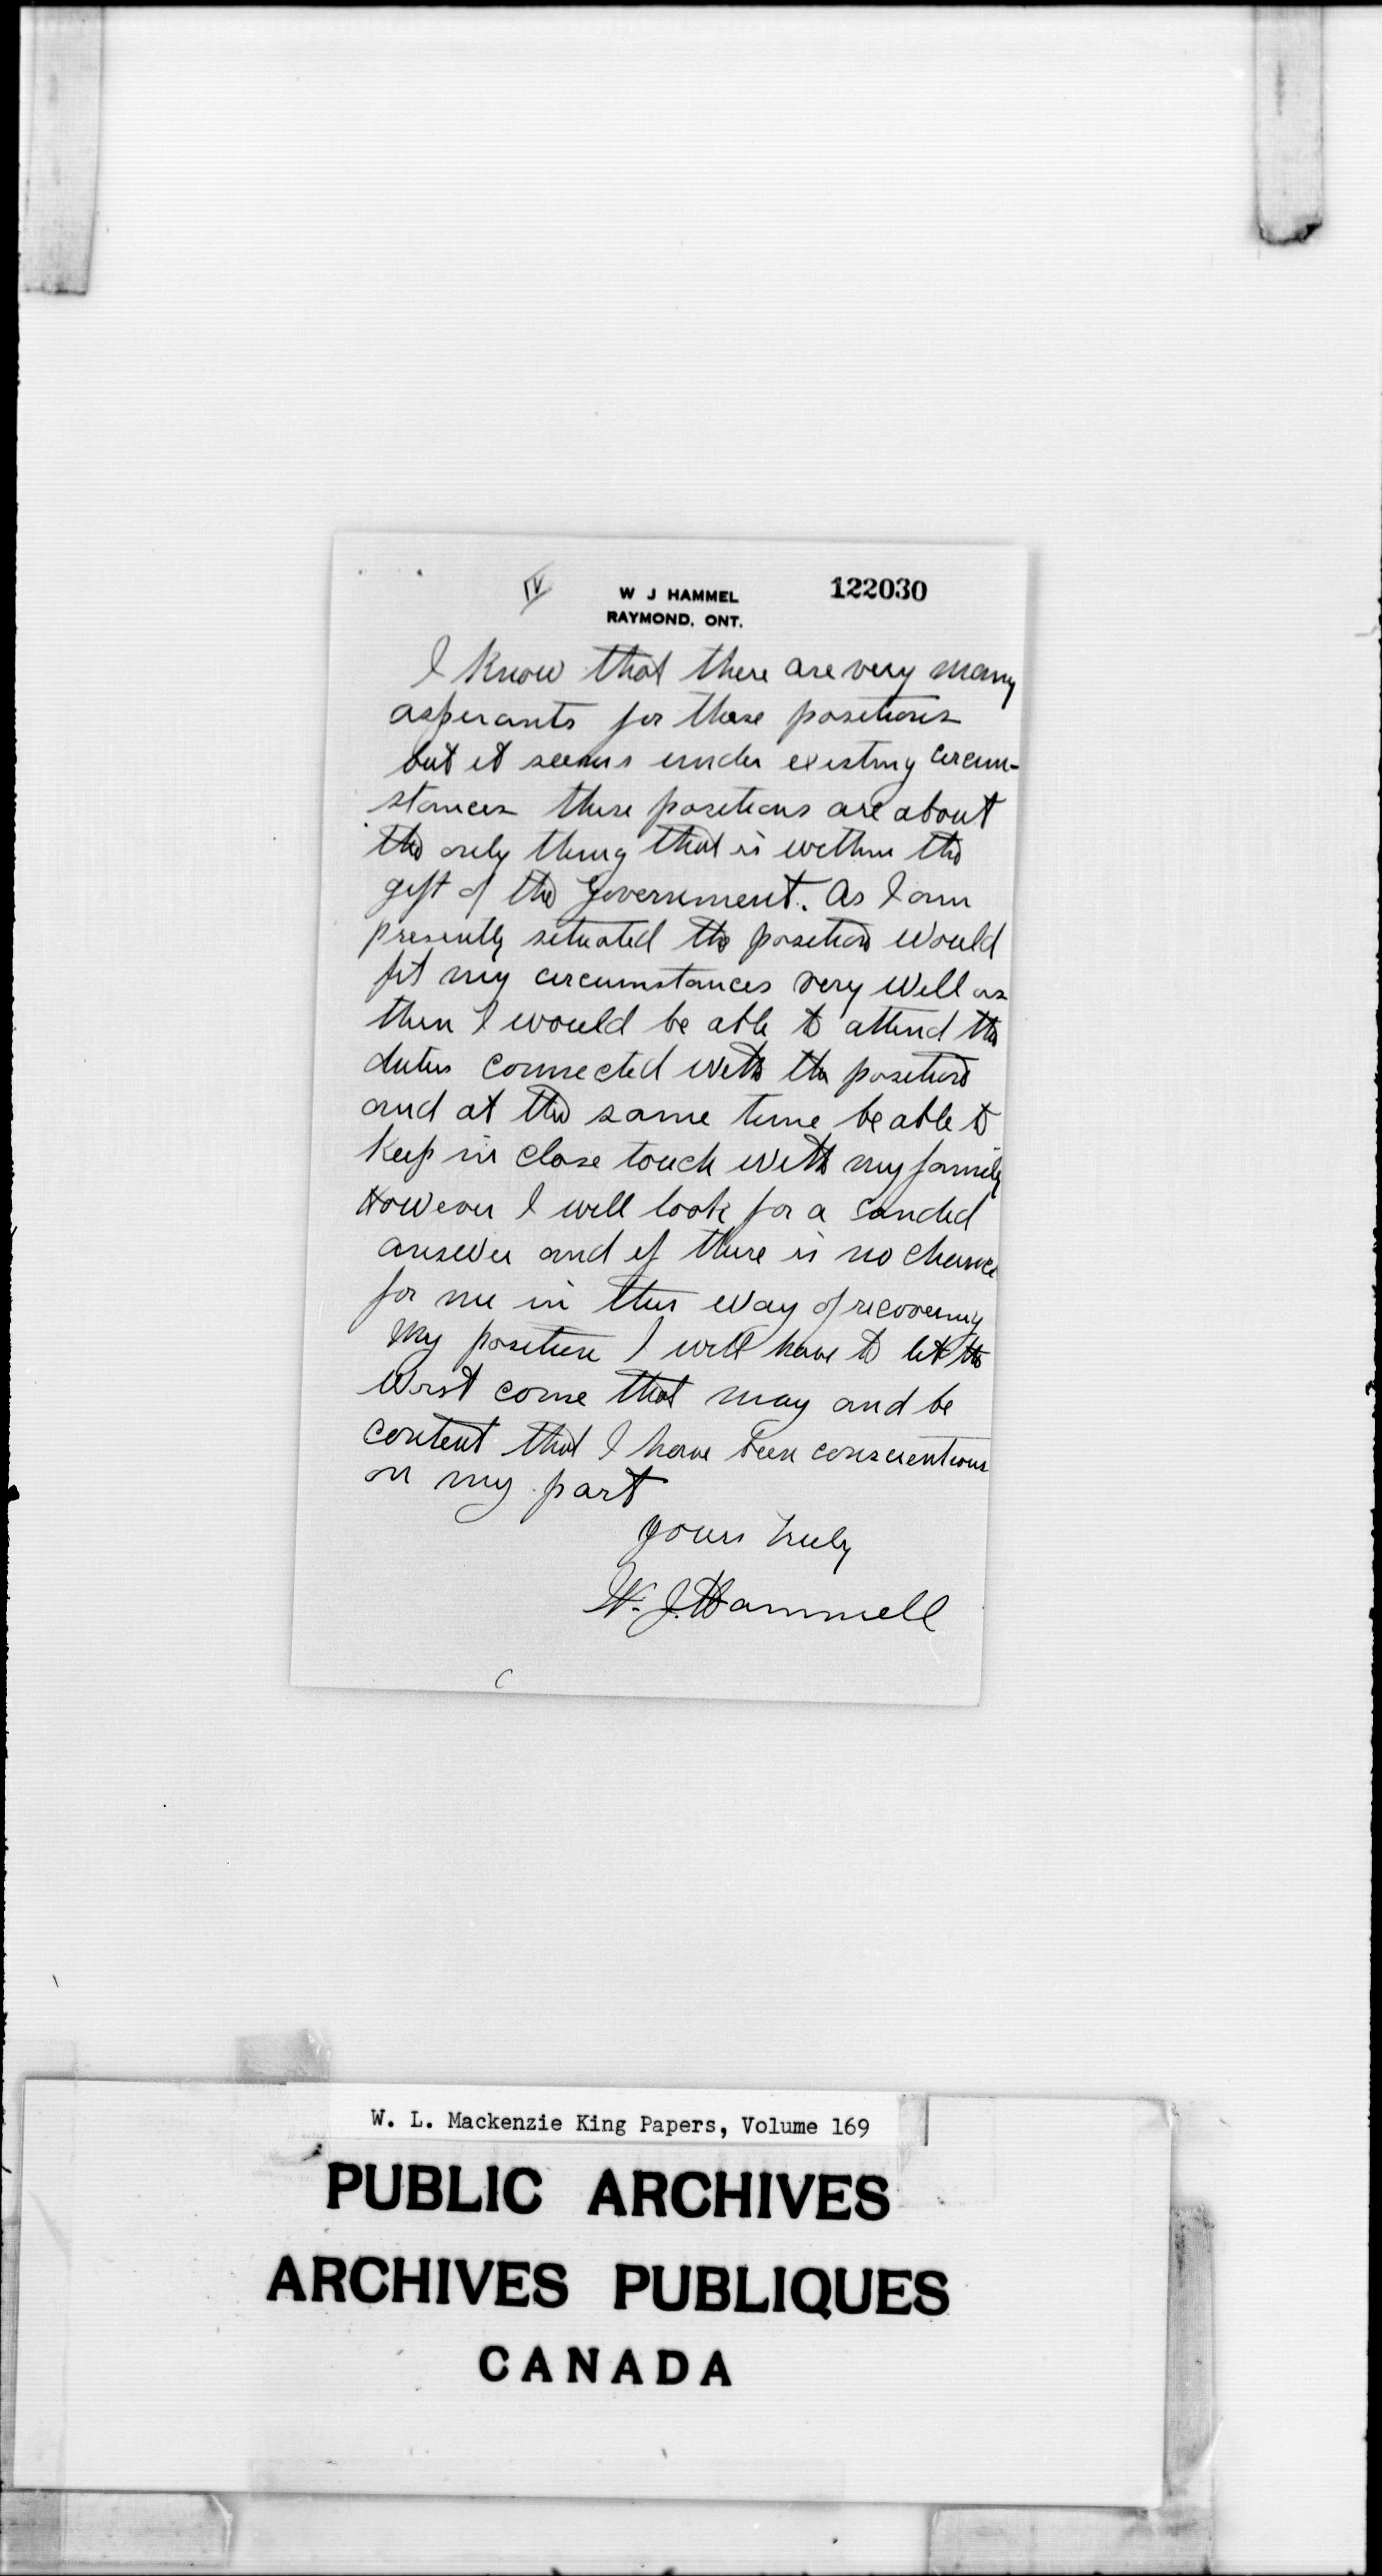 IV
W J HAMMEL
122030
RAYMOND, ONT.
I know that there are very many
aspirants for these positions
but it seems under existing circum-
stances these positions are about
the only thing that is within the
gift of the Government. As I am
presently situated the position would
fit my circumstances very well as
then I would be able to attend the
duties connected with the position
and at the same time be able to
keep in close touch with my family
However I will look for a candid
answer and if there is no chance
for me in this way of recovering
my position I will have to let the
worst come that may and be
content that I have been conscientious
on my part
Yours truly
W. J. Hammell
W. L. Mackenzie King Papers, Volume 169
PUBLIC ARCHIVES
ARCHIVES PUBLIQUES
CANADA